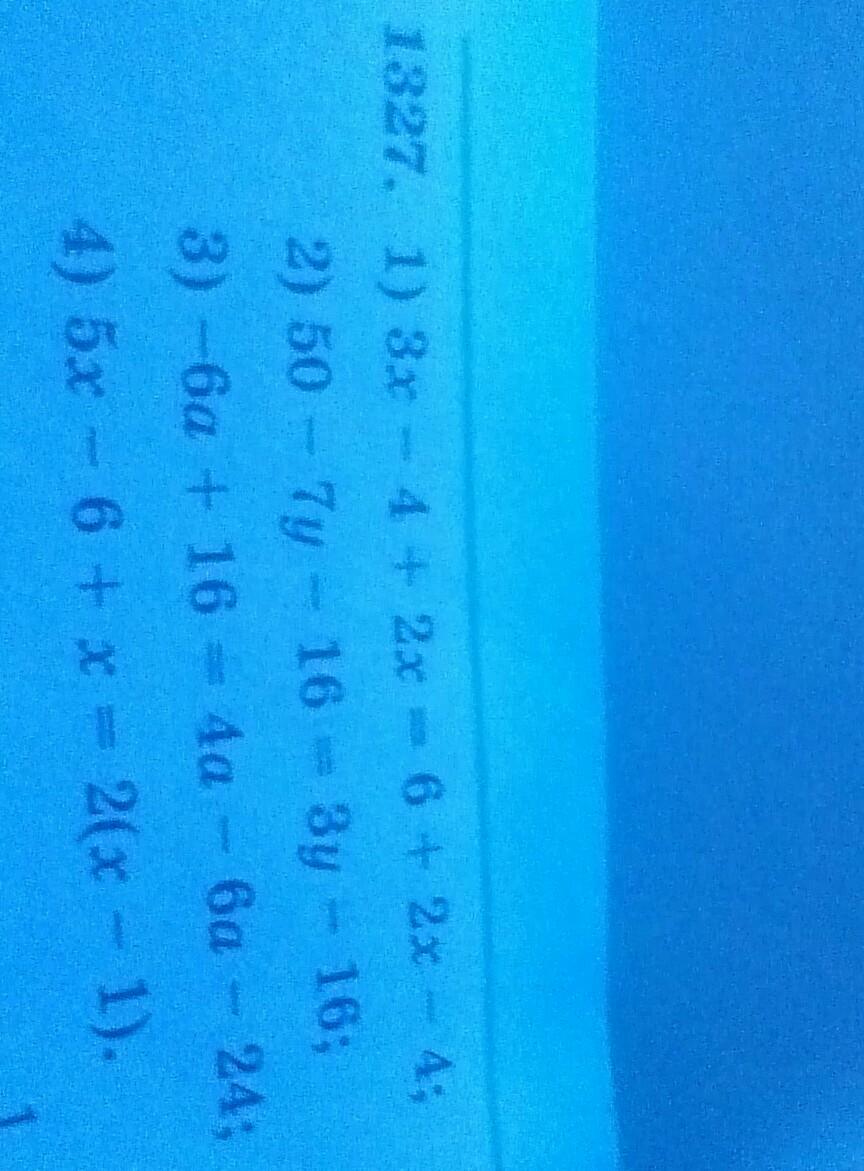 1327. 1) 3x − 4 + 2x = 6 + 2x − 4;
2) 50 − 7y − 16 = 3y − 16;
3) −6a + 16 = 4a − 6a − 24;
4) 5x − 6 + x = 2(x − 1).
1